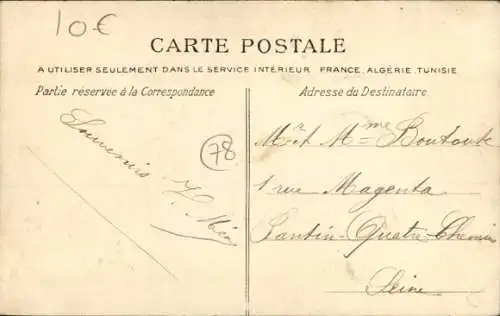 10 €
CARTE POSTALE
A UTILISER SEULEMENT DANS LE SERVICE INTÉRIEUR FRANCE, ALGÉRIE, TUNISIE
Partie réservée à la Correspondance
Adresse du Destinataire
Souvenirs
78
Mr et Mme
1 rue Magenta
Pantin-Quatre-Chemins
Seine